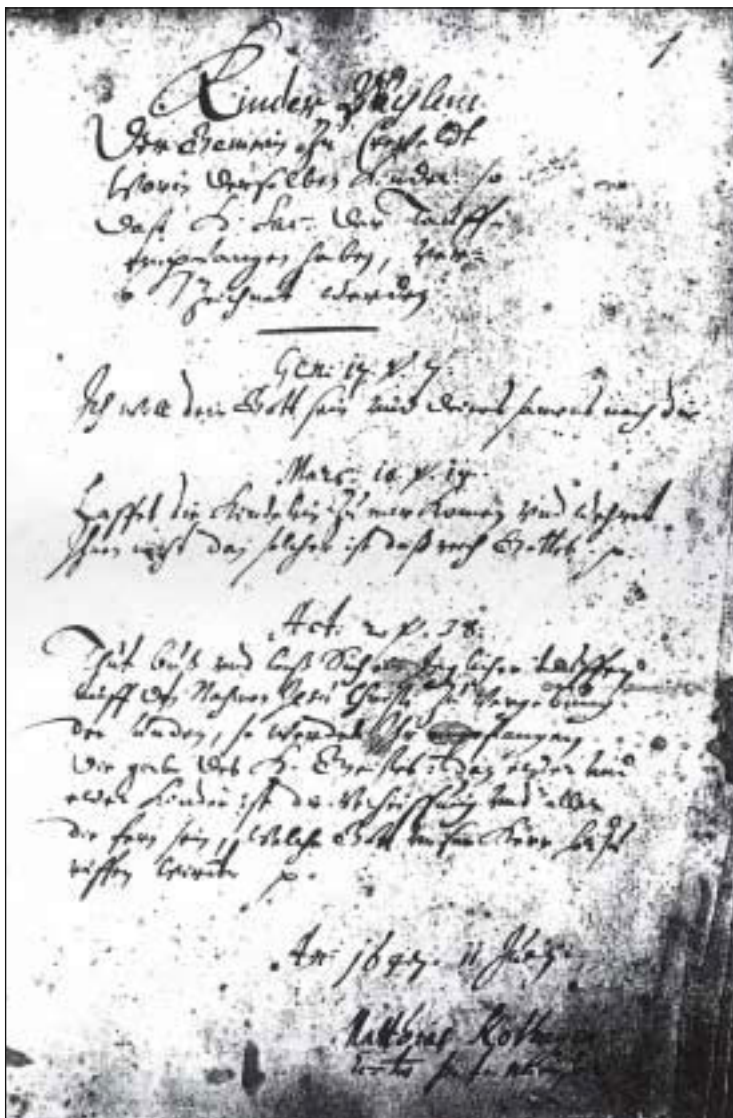 1
Kinder Büchlein
Der Gemein zu Creyfeldt
Worin derselben Kinder so
daß H. Sac. der Tauff
empfangen haben, ver=
Zeichnet werden
Gen: 17. v. 7.
Ich will dein Gott sein und deines samens nach dir
Marc. 10. v. 14.
Lasset die Kindelein zu mir komen und wehret
Ihnen nicht dan solcher ist daß reich Gottes.
Act. 2 v. 38.
Thut buß und laß Sich ein Jeglicher tauffen
auff den Nahmen Jesu Christi zu Vergebung
der sünden, so werdet Ihr empfangen
die gabe des H. Geistes: dan ewer und
ewer Kinder ist die Verheissung und aller
die fern sein, welche Gott unser Herr
ruffen wirdt
An: 11
Matthias